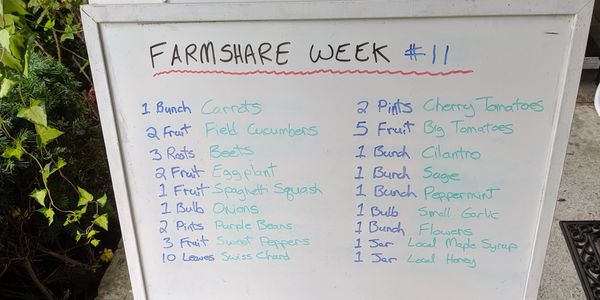 FARMSHARE WEEK #11
1 Bunch Carrots
2 Fruit Field Cucumbers
3 Roots Beets
2 Fruit Eggplant
1 Fruit Spaghetti Squash
1 Bulb Onions
2 Pints Purple Beans
3 Fruit Sweet Peppers
10 Leaves Swiss Chard
2 Pints Cherry Tomatoes
5 Fruit Big Tomatoes
1 Bunch Cilantro
1 Bunch Sage
1 Bunch Peppermint
1 Bulb Small Garlic
1 Bunch Flowers
1 Jar Local Maple Syrup
1 Jar Local Honey